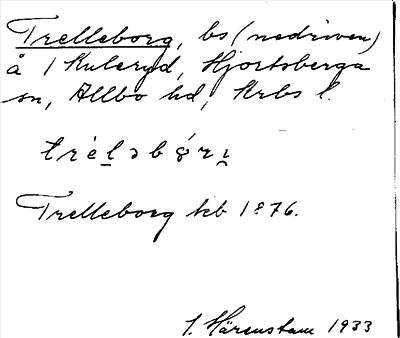 Trelleborg, bs (nedriven)
å 1 Kuleryd, Hjortsberga
sn, Allbo hd, Krbs l.
trèl̠əbǿrı̯
Trelleborg hcb 1876.
1. Härenstam 1933